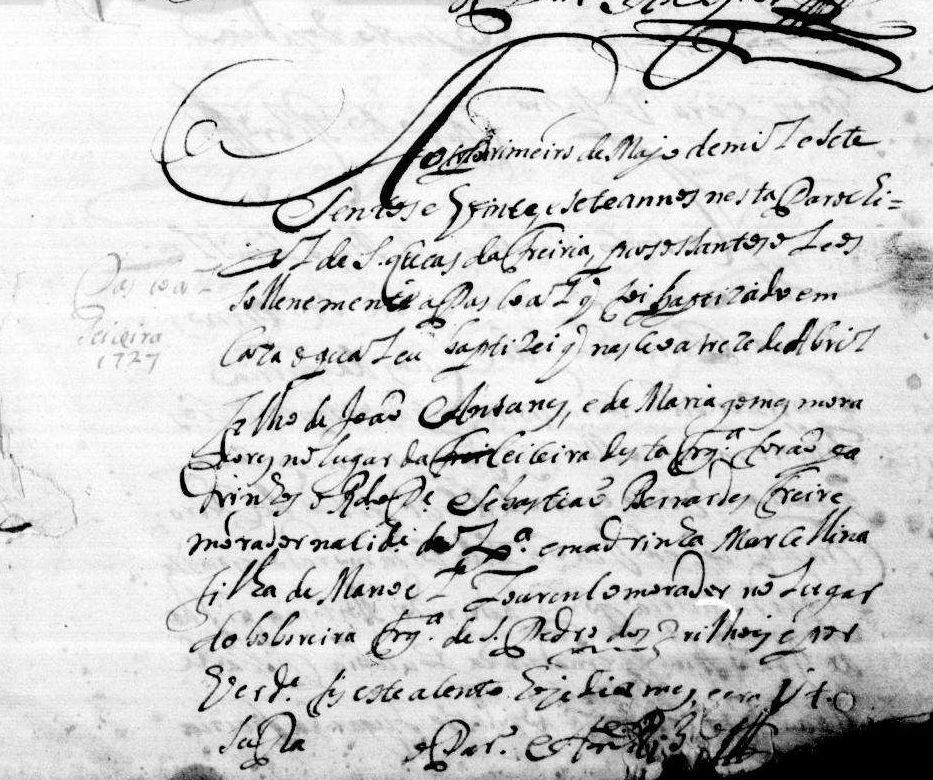 Pascoal
Teixeira
1727
primeiro de Mayo de mil e sete
sentos e Vinte, e sete annos nesta Parochi=
al de S. Lucas da Freiria, pus os santos oleos
sollenemente a Pascoal q foi baptizado em
Caza o qual eu baptizei q nasceo a treze de Abril
filho de João Antunes, e de Maria gomes mora
dores no lugar da leiteira desta frg.ª forão pa
drinhos o R.do P.e Sebastião Bernardes Freire
morador na cid.e de Lx.ª e madrinha Marcellina
filha de Manoel Lourenço morador no Lugar
do boboreira frg.ª de S. Pedro dos grilhois e por
verd.e fis este asento hoje dia mes, e era Ut
supra
o Par.